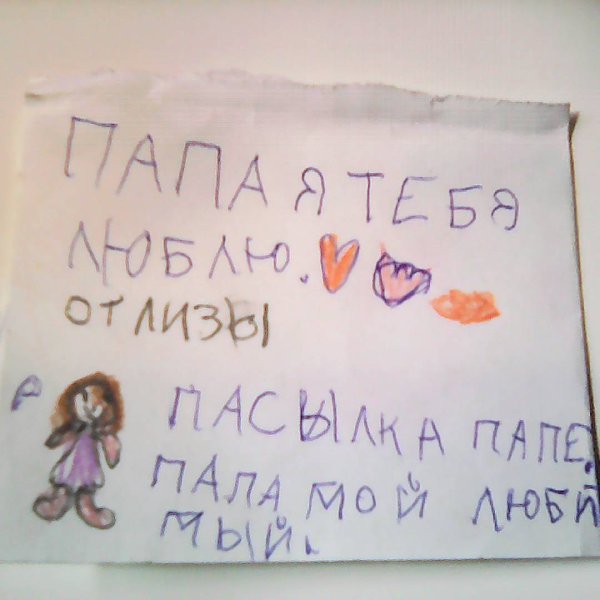 ПАПА Я ТЕБЯ
ЛЮБЛЮ.
ОТ ЛИЗЫ
ПАСЫЛКА ПАПЕ.
ПАПА МОЙ ЛЮБИ
МЫЙ.